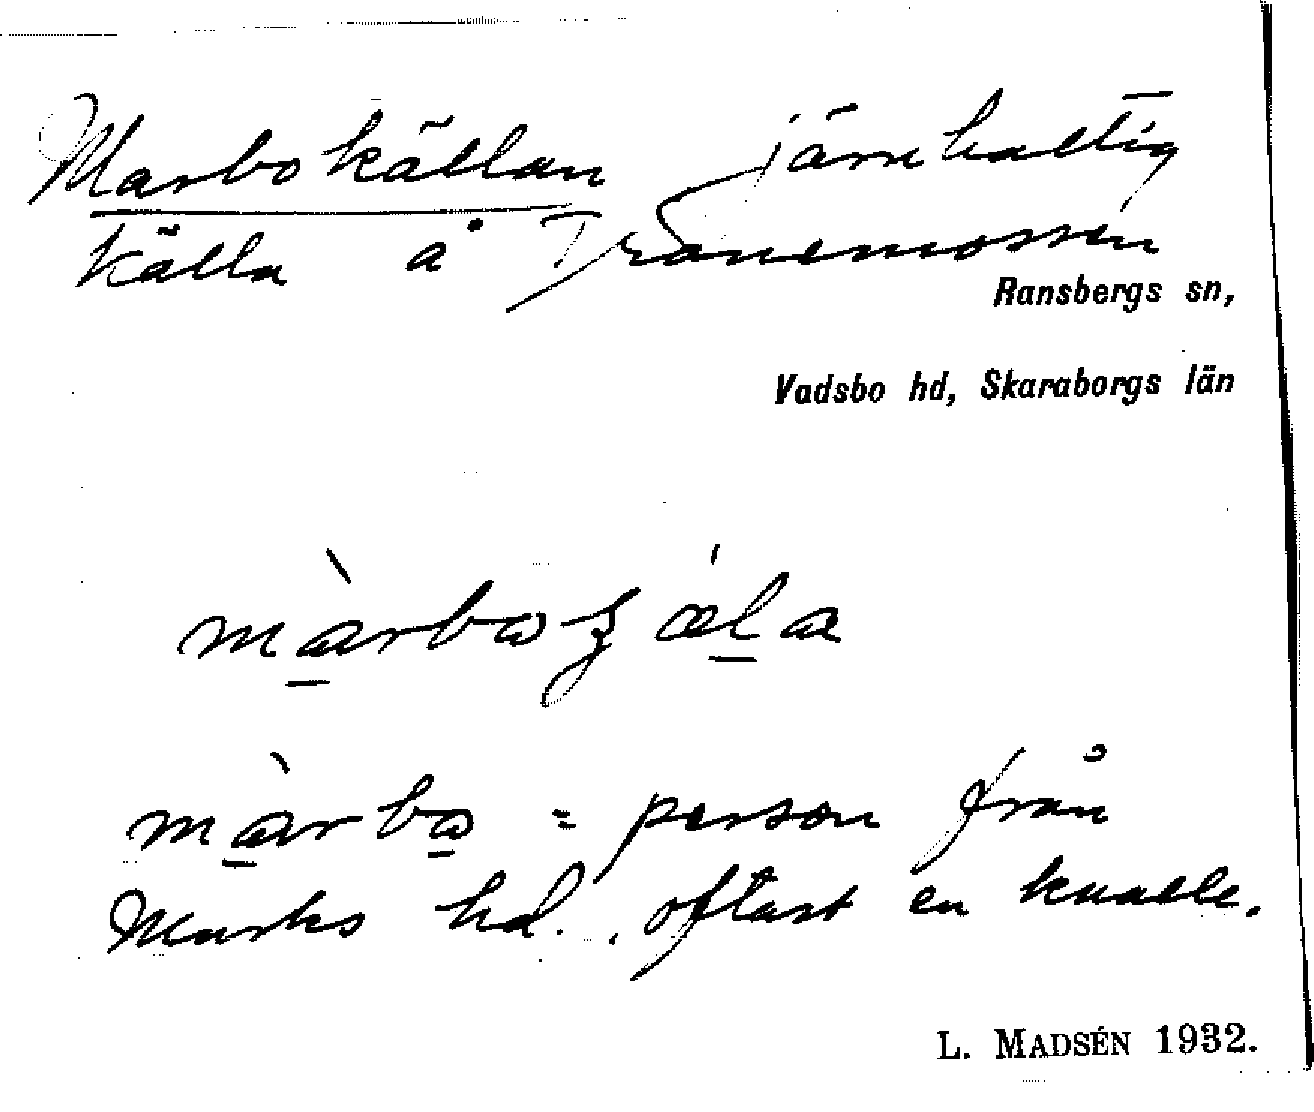 Marbokällan järnhaltig
källa å Tranemossen
Ransbergs sn,
Vadsbo hd, Skaraborgs län
màrboʒ ǽla
màrbo = person från
Marks hd., oftast en knalle.
L. MADSÉN 1932.